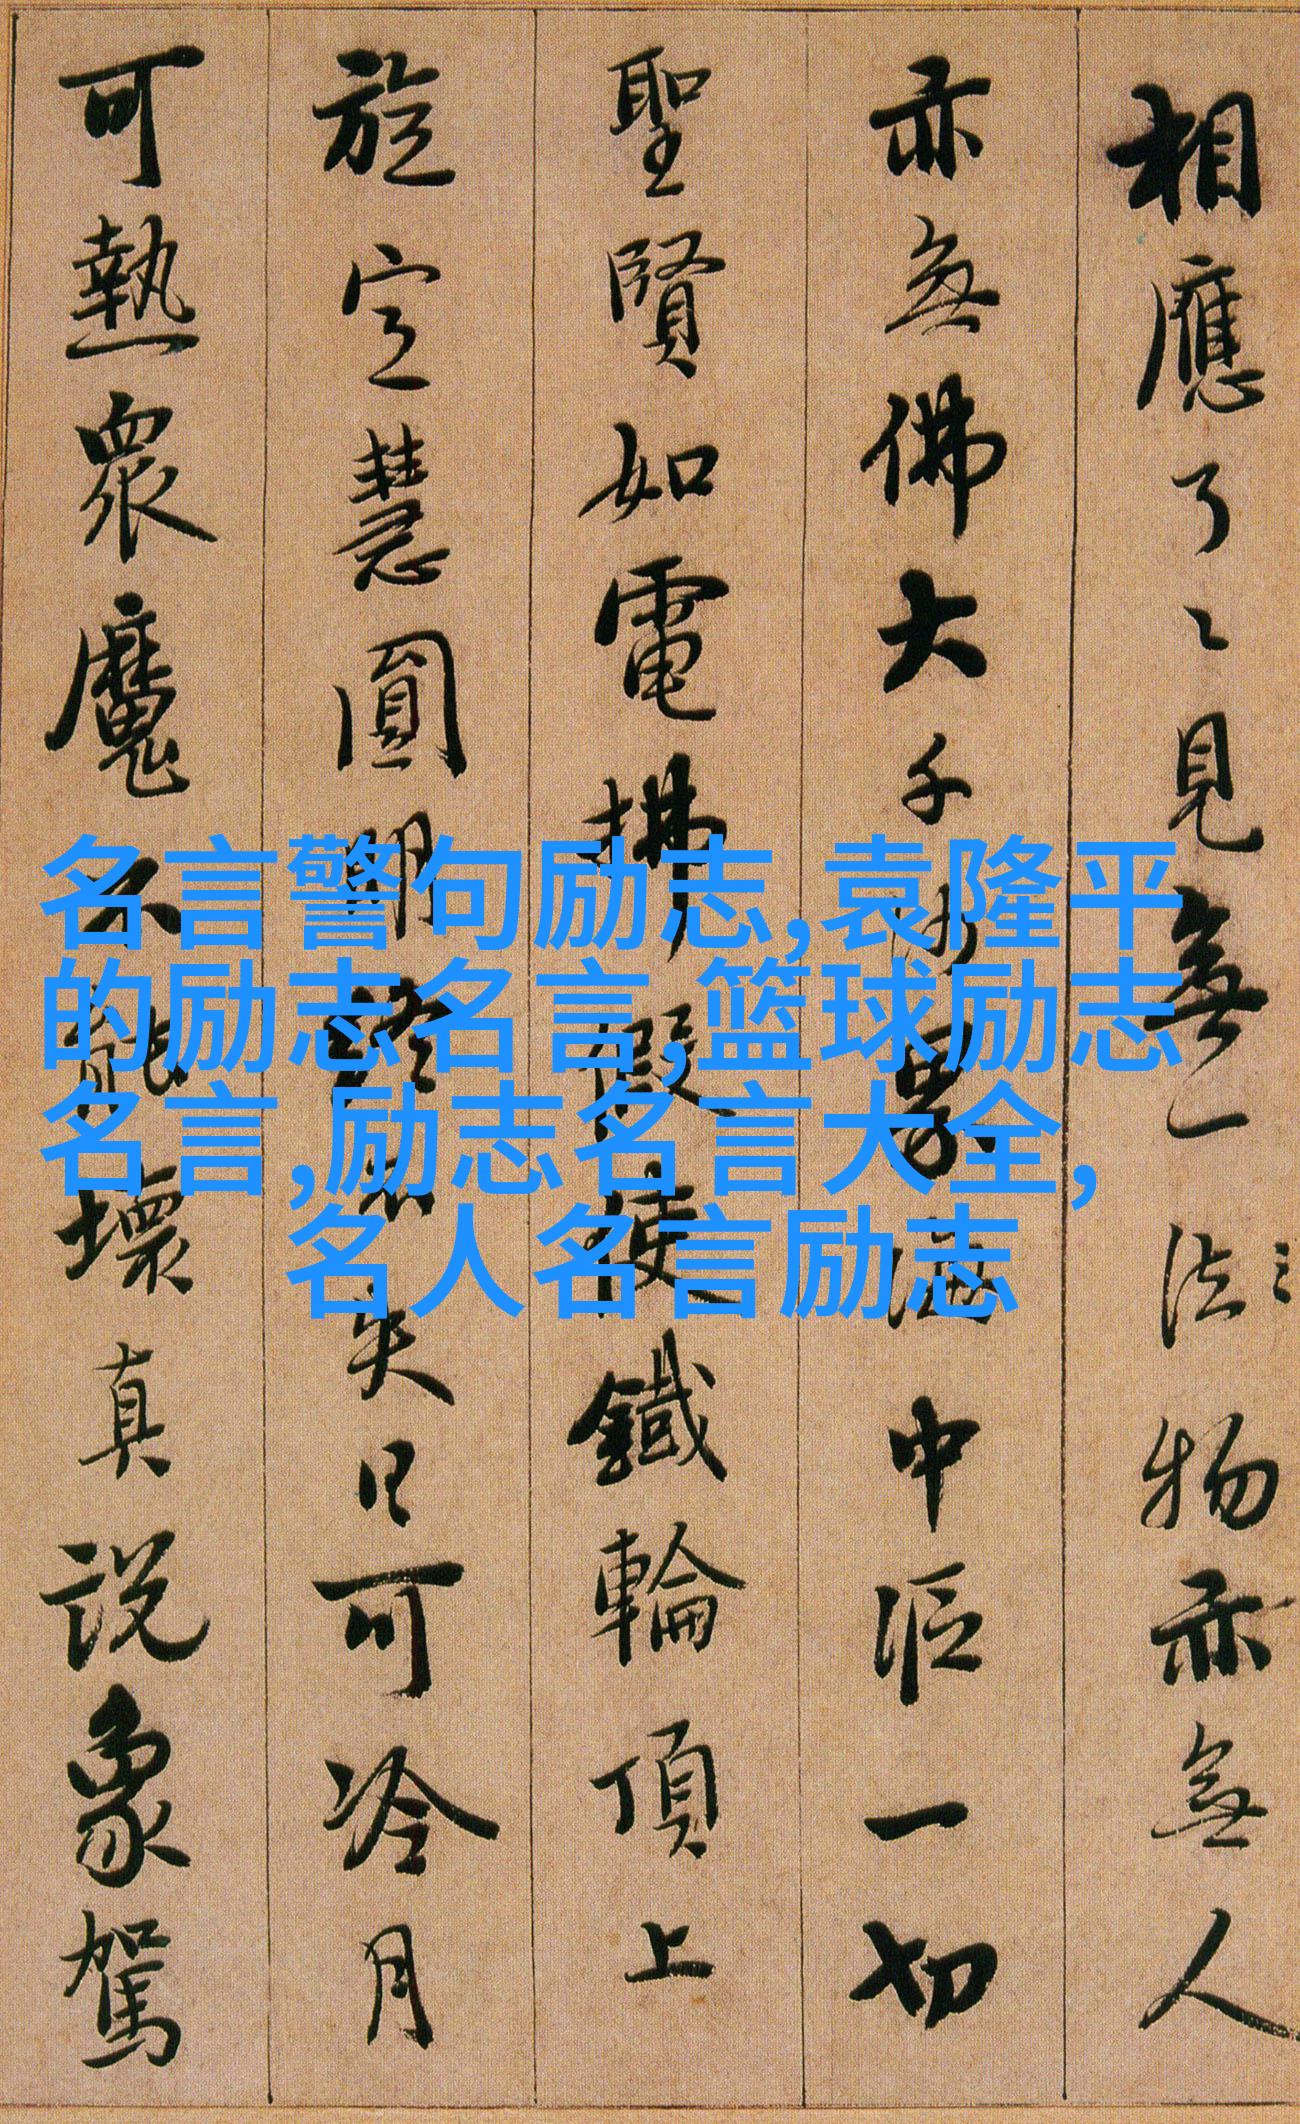 相應了〻見無一法物亦無人
亦無佛大千沙界海中漚一切
聖賢如電拂假使鐵輪頂上
旋定慧圓明終不失日可冷月
可熱眾魔不能壞真說象駕
名言警句励志,袁隆平
的励志名言,篮球励志
名言,励志名言大全,
名人名言励志